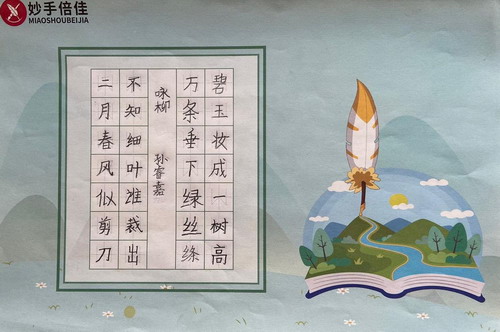 妙手倍佳
MIAOSHOUBEIJIA
碧玉妆成一树高
万条垂下绿丝绦
咏柳 孙睿嘉
不知细叶谁裁出
二月春风似剪刀